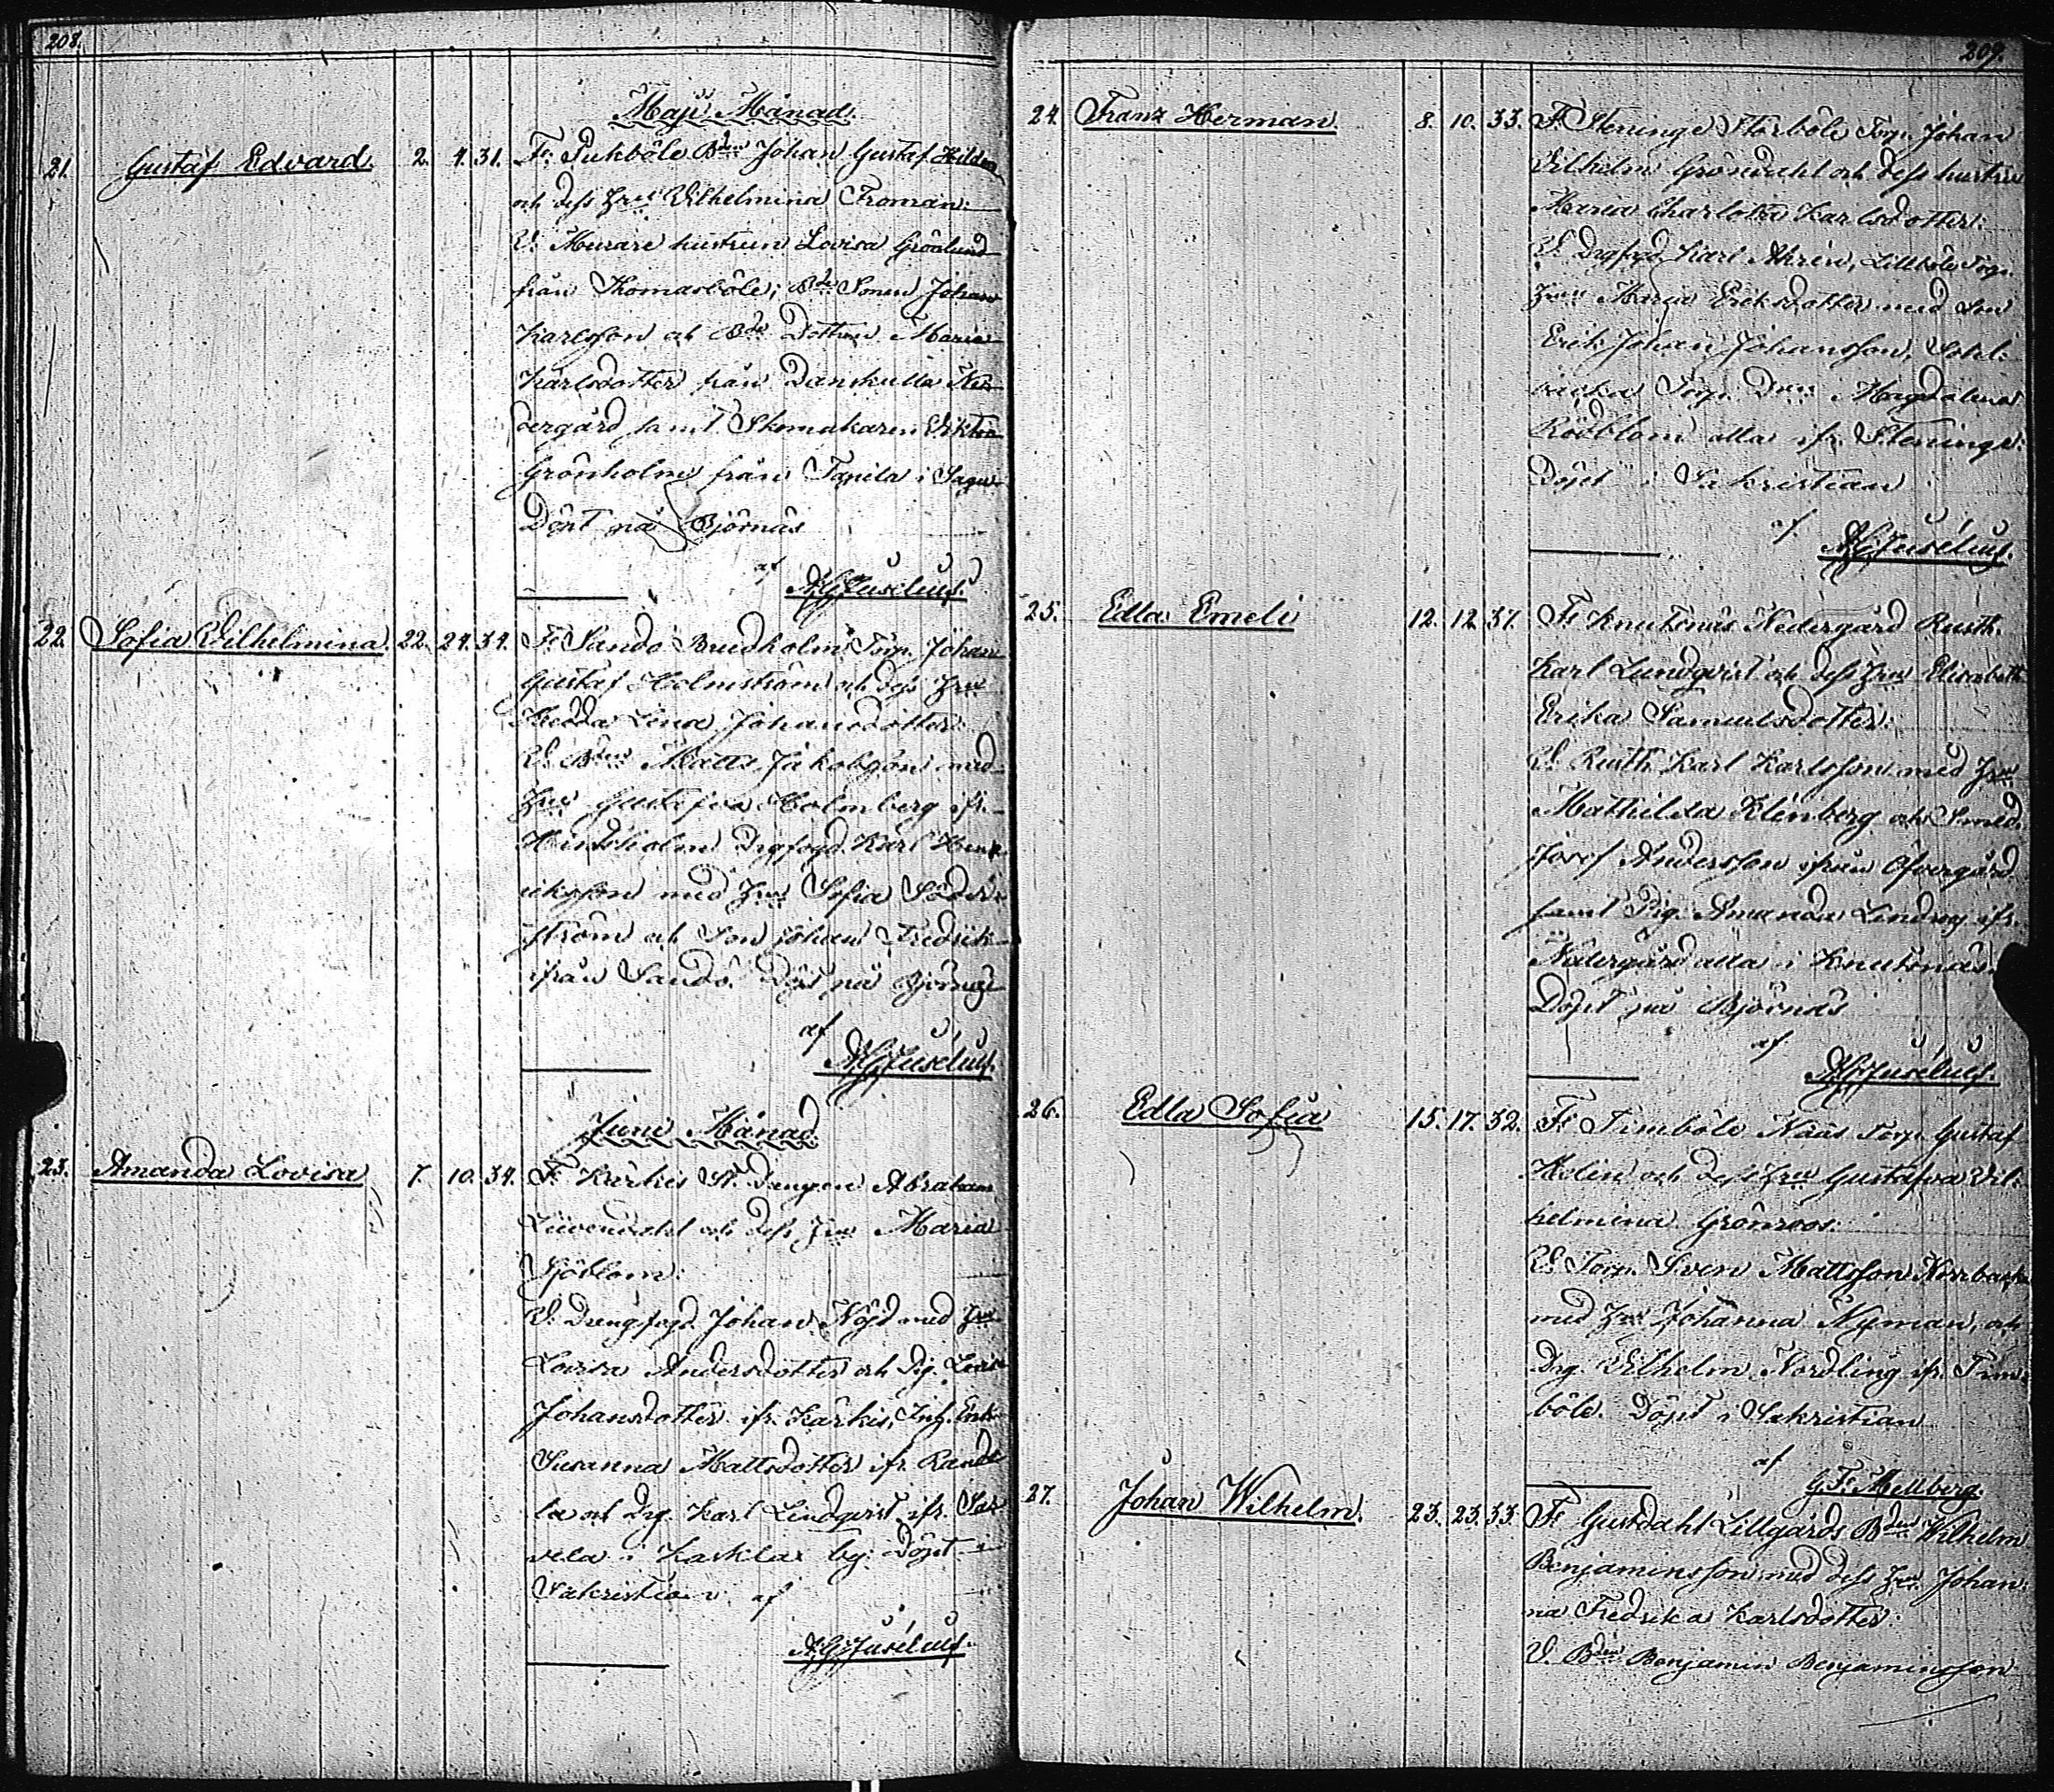 208.
Maji Månad.
21. Gustaf Edvard. 2. 4. 31. Fr. Pukböle Bden Johan Gustaf Hildén
och dess Hru Vilhelmina Froman:
V. Murare hustrun Lovisa Grönlund
från Thomasböle; Bde Sonen Johan
Karlsson och Bde Dottren Maria
Karlsdotter från Danskulla Ne-
dergård samt Skomakaren Viktor
Grönholm från Tapila i Sagu
Döpt på Björnäs
af
AGJusélius.
22. Sofia Vilhelmina. 22. 24. 34. Fr. Sandö Bredholm Torp. Johan
Gustaf Holmström och dess Hru
Hedda Lena Johansdotter:
V. Bden Matts Jakobson med
Hru Gustafva Holmberg ifr.
Hindsholm Drgfogd. Karl Henr-
iksson med Hru Sofia Söder-
ström och Son Johan Fredrik
ifrån Sandö. Döpt på Björnäs
af
AGJusélius.
Juni Månad
23. Amanda Lovisa 7. 10. 34. Fr. Kärkis St. Drengen Abraham
Lövendahl och dess Hru Maria
Sjöblom:
V. Drengfogd. Johan Nöjd med Hru
Lovisa Andersdotter och Pig. Lovisa
Johansdotter ifr. Kärkis, Inh. Enk.
Susanna Mattsdotter ifr.
la och Drg. Karl Lindqvist ifr.
vela i Kaskla by. Döpt i
Sakristian af
AGJusélius.
209.
24. Franz Herman 8. 10. 33. Fr. Steninge Storböle Torp. Johan
Vilhelm Gröndahl och dess hustru
Maria Charlotta Karlsdotter:
V. Drgfogd. Karl Ahrén, Lillböle Torp.
Hru Maria Eriksdotter med Son
Erik Johan Johansson,
backa Torp. Magdalena
Rödblom alla ifr. Steninge:
Döpt i Sakristian
af
AGJusélius.
25. Edla Emeli 12. 12. 37. Fr. Knutsnäs Nedergård Rusth.
Karl Lundqvist och dess Hru Elisabeth
Erika Samuelsdotter:
V. Rusth. Karl Karlsson med Hru
Mathilda Klinberg och Smed.
Josef Andersson ifrån Öfvergård
samt Pig. Amanda Lindroos ifr.
Nedergård alla i Knutsnäs.
Döpt på Björnäs
af
AGJusélius.
26. Edla Sofia 15. 17. 32. Fr. Timböle Nääs Torp. Gustaf
Helin och dess Hru Gustafva Vil-
helmina Grönroos:
V. Torp. Sven Mattsson Norrbacka
med Hru Johanna Nyman, och
Drg. Vilhelm Nordling ifr. Tim-
böle. Döpt i Sakristian
af
G. F. Mellberg.
27. Johan Wilhelm. 23. 23. 33. Fr Gustdahl Lillgårds Bden Wilhelm
Benjaminsson med dess Hru Johan-
na Fredrika Karlsdotter:
V. Bden Benjamin Benjaminsson